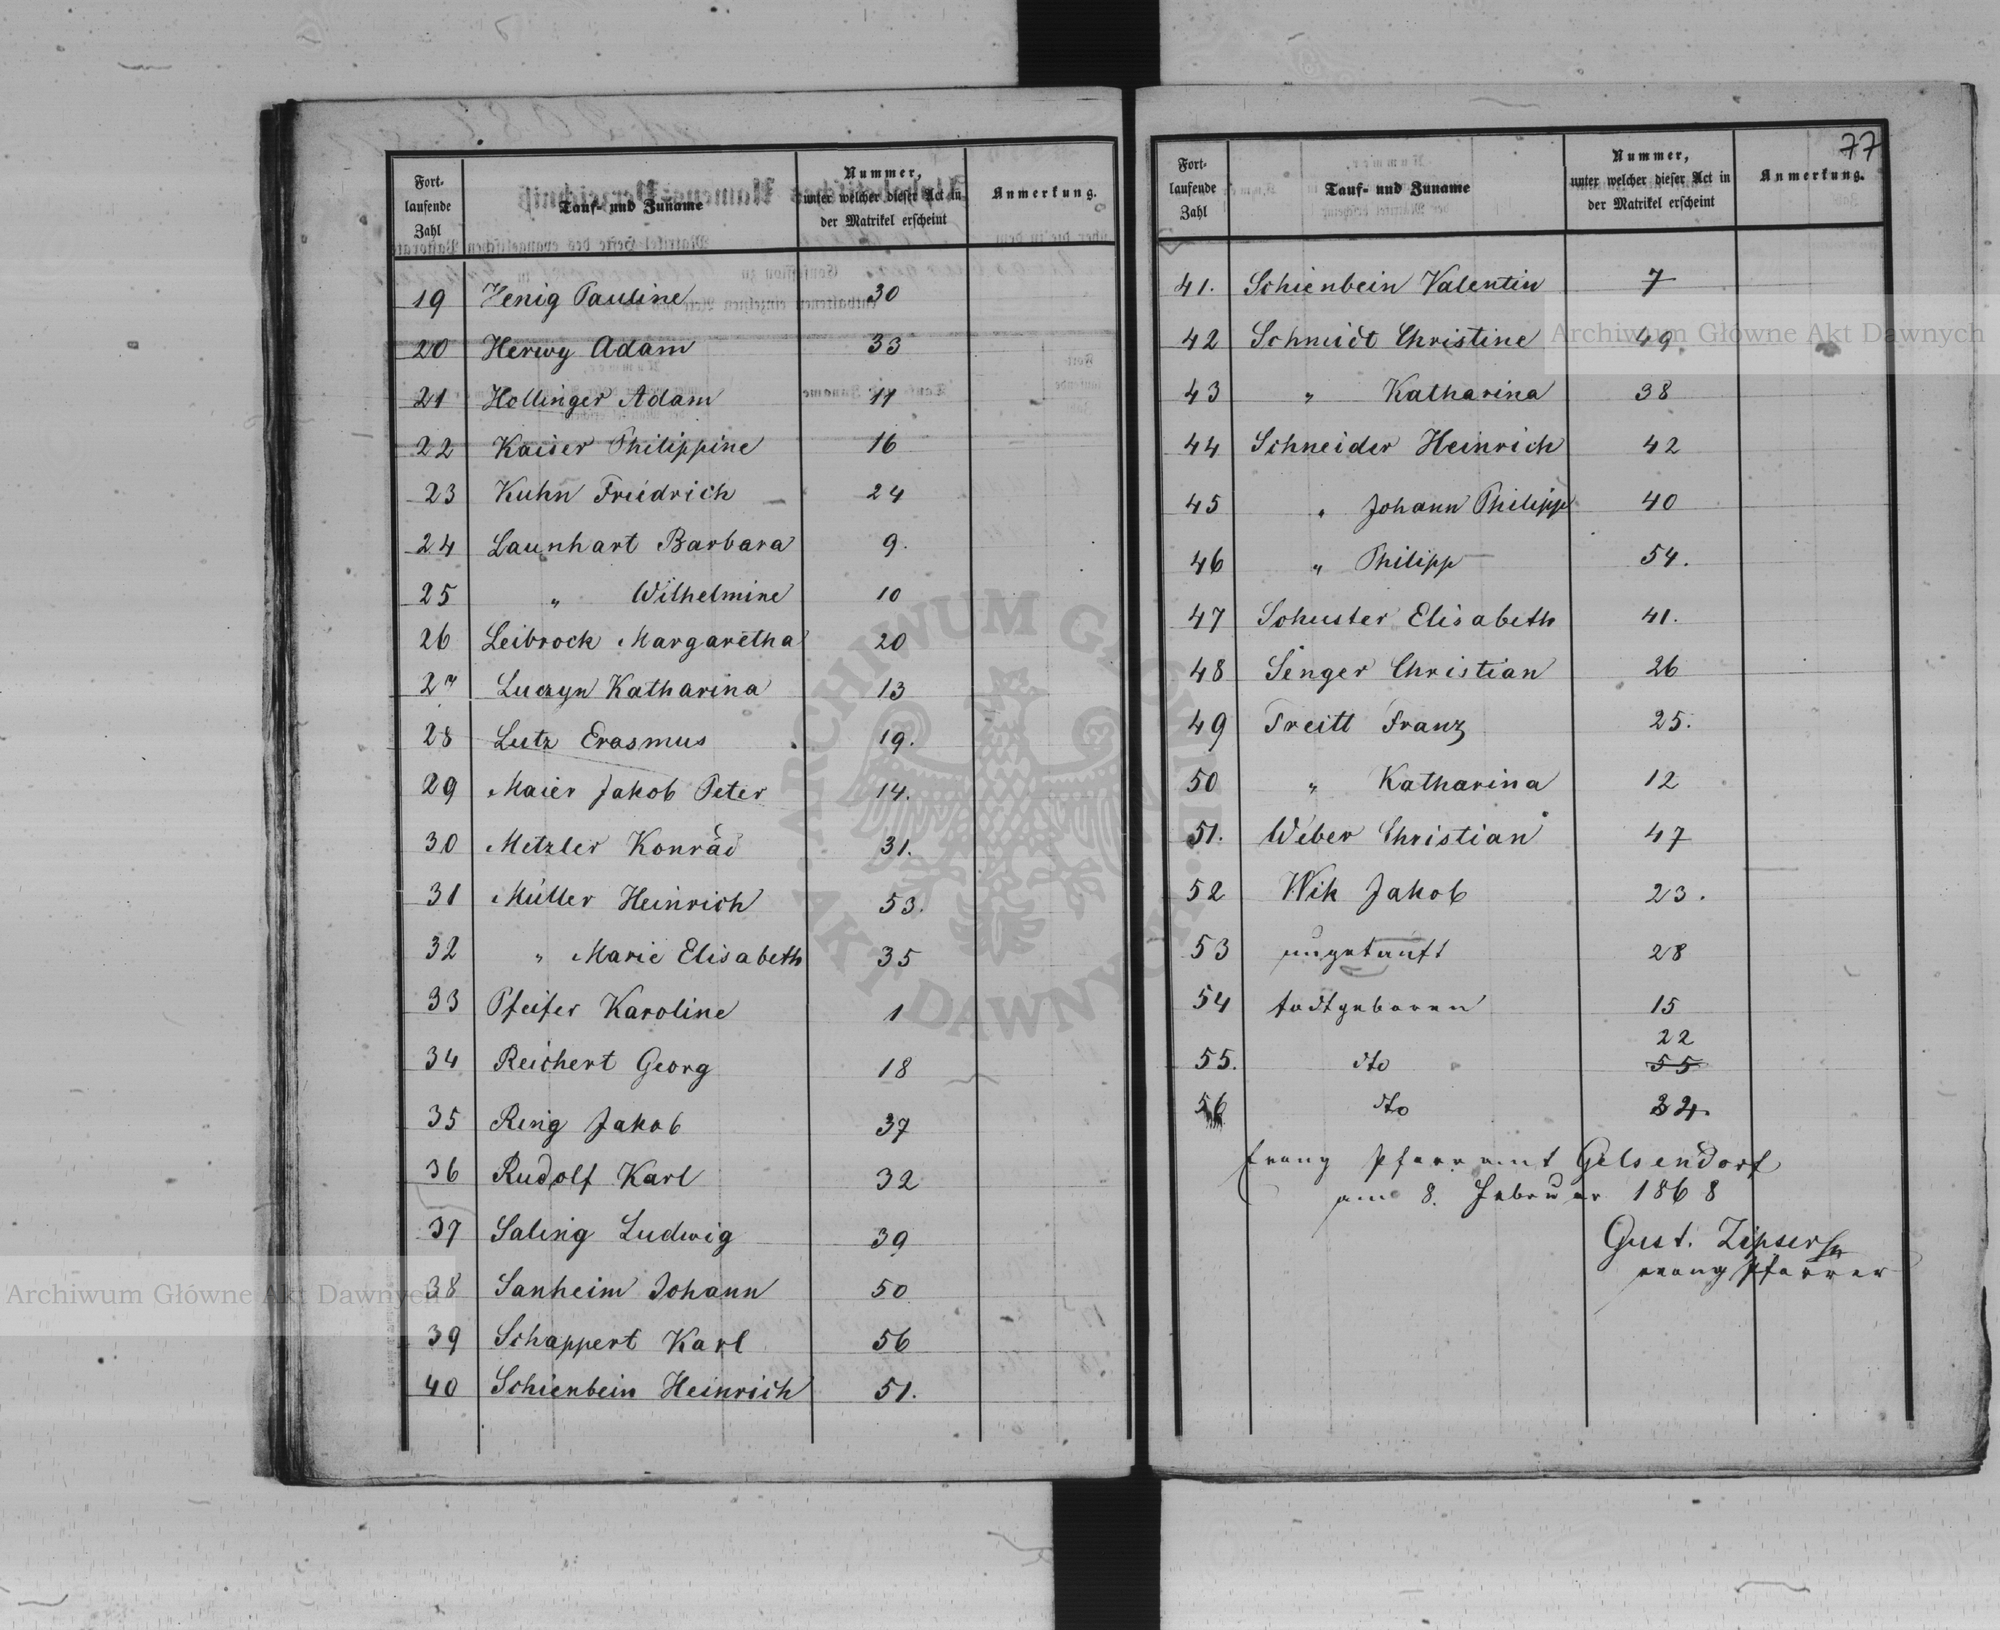 77
Fort-
laufende
Zahl
Tauf- und Zuname
Nummer,
unter welcher dieser Act in
der Matrikel erscheint
Anmerkung.
19 Henig Pauline 30
20 Herwy Adam 33
21 Hollinger Adam 11
22 Kaiser Philippine 16
23 Kuhn Friedrich 24
24 Launhart Barbara 9.
25 " Wilhelmine 10
26 Leibrock Margaretha 20
27 Luczyn Katharina 13
28 Lutz Erasmus 19.
29 Maier Jakob Peter 14.
30 Metzler Konrad 31.
31 Müller Heinrich 53.
32 " Marie Elisabeth 35
33 Pfeifer Karoline 1
34 Reichert Georg 18
35 Ring Jakob 37
36 Rudolf Karl 32
37 Saling Ludwig 39
38 Sanheim Johann 50
39 Schappert Karl 56
40 Schienbein Heinrich 51.
Fort-
laufende
Zahl
Tauf- und Zuname
Nummer,
unter welcher dieser Act in
der Matrikel erscheint
Anmerkung.
41. Schienbein Valentin 7
42 Schmidt Christine 49.
43 " Katharina 38
44 Schneider Heinrich 42
45 " Johann Philipp 40
46 " Philipp 54.
47 Schuster Elisabeth 41.
48 Senger Christian 26
49 Treitt Franz 25.
50 " Katharina 12
51. Weber Christian 47
52 Wik Jakob 23.
53 ungetauft 28
54 todtgeboren 15
22
55. dto 55
56 dto 34.
Evang Pfarramt Gelsendorf
am 8. Februar 1868
Gust. Zipser
evang Pfarrer
Archiwum Główne Akt Dawnych
Archiwum Główne Akt Dawnych
ARCHIWUM GŁÓWNE AKT DAWNYCH